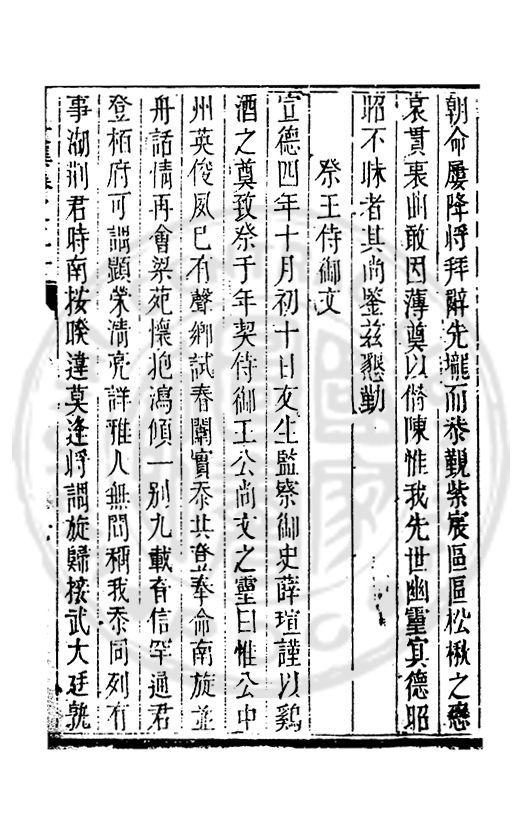 朝命屢降將拜辭先壠而恭覲紫宸區區松楸之戀
哀貫裏幽敢因薄奠以俻陳惟我先世幽靈其德昭
昭不昧者其尚鑒兹懇勤
祭王侍御文
宣德四年十月初十日友生監察御史薛瑄謹以鷄
酒之奠致祭于年契侍御王公尚文之靈曰惟公中
州英俊夙已有聲鄉試春闈實忝共登奉命南旋並
舟話情再會梁苑懷抱瀉傾一别九載音信罕通君
登栢府可謂顯榮清亮詳雅人無間稱我忝同列有
事湖荆君時南按暌違莫逢將謂旋歸接武大廷孰